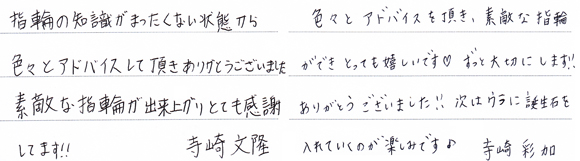 指輪の知識がまったくない状態から
色々とアドバイスして頂きありがとうございました
素敵な指輪が出来上がりとても感謝
してます!!
寺崎 文隆
色々とアドバイスを頂き、素敵な指輪
ができとっても嬉しいです♡ ずっと大切にします!!
ありがとうございました!! 次はウラに誕生石を
入れていくのが楽しみです♪
寺崎 彩加